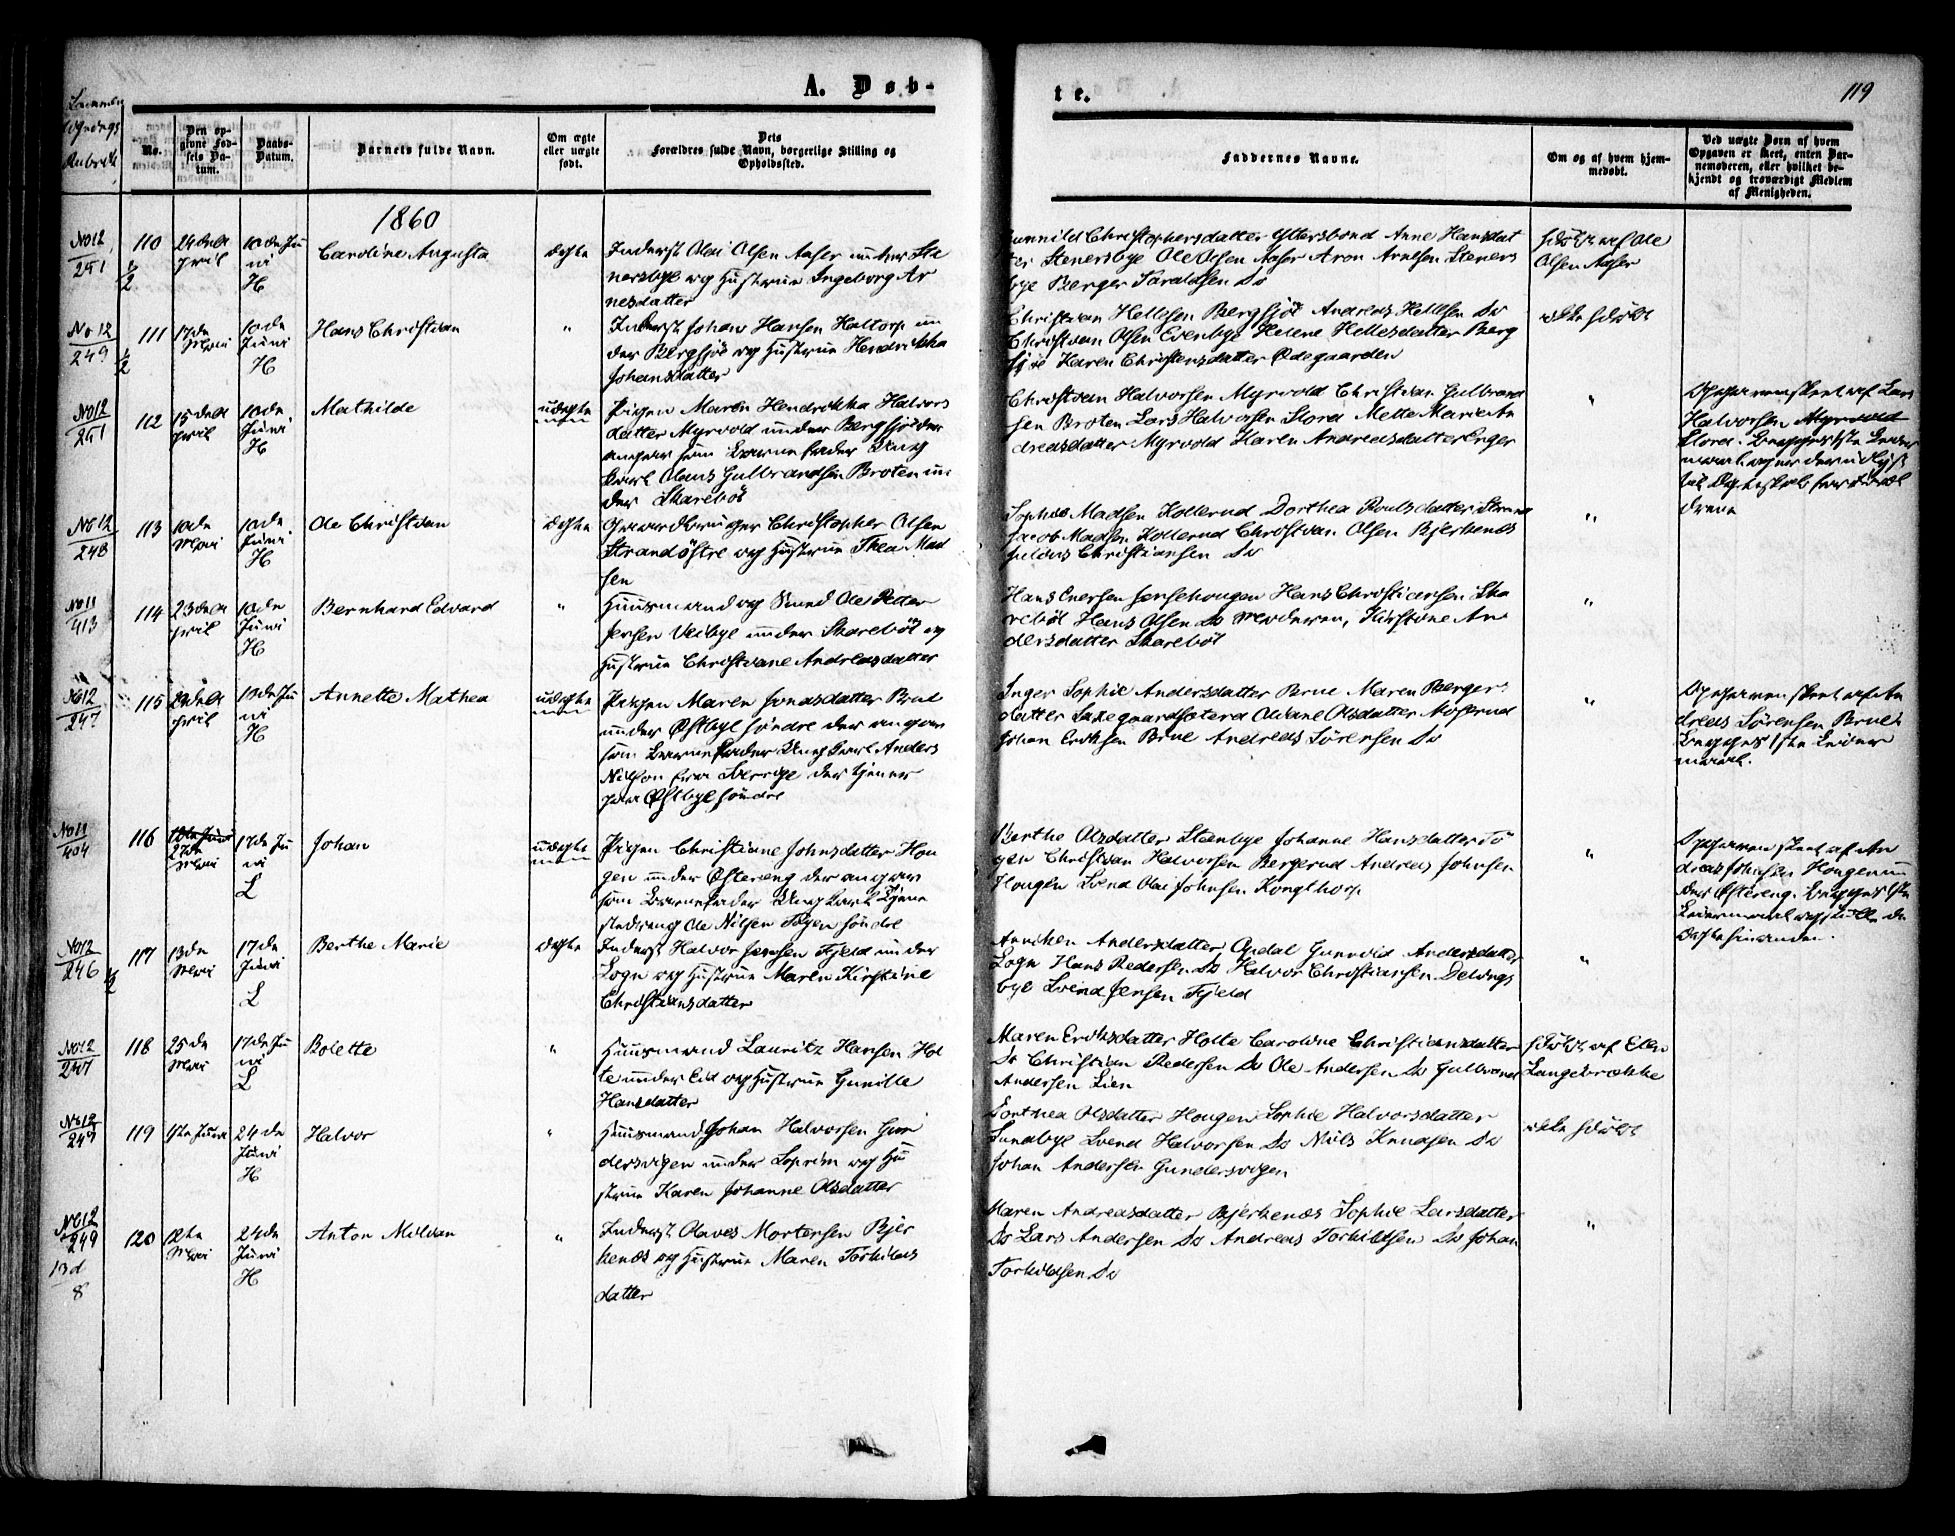 A. Døb-
te.
119
No.
Den op-
givne Fød-
sels Da-
tum.
Daabs-
Datum.
Barnets fulde Navn.
Om ægte
eller uægte
født.
Dets
Forældres fulde Navn, borgerlige Stilling og
Opholdssted.
Faddernes Navne.
Om og af hvem hjem-
medøbt.
Ved uægte Børn af hvem
Opgaven er skeet, enten Bar-
nemoderen, eller hvilket be-
kjendt og troværdigt Medlem
af Menigheden.
1860
No 12
251
110
24de A
pril
10de Ju
ni
H
Caroline Augusta
ægte
Inderst Olai Olsen Aaser under Ste
nersbye og Hustrue Ingeborg Ar
nesdatter
Gunnild Christophersdatter Anne Hansdat
ter Stenersbye Ole Olsen Aaser Aron Arnesen Steners
bye Berger Taraldsen Do
hjdøbt af Ole
Olsen Aaser
No 12
249
111
17de
Mai
10de
Juni
H
Hans Christian
"
Inderst Johan Hansen Haltorp un
der Bergsjøe og Hustrue Hendrikka
Johansdatter
Christian Hellesen Bergsjøe Andreas Hellesen Do
Christian Olsen Evenbye Helene Hellesdatter Berg
sjøe Karen Christensdatter Ødegaarden
ikke hjdøbt
No 12
251
112
15de A
pril
10de
Juni
H
Mathilde
uægte
Pigen Maren Hendrikka Halvors
datter Myrvold under Bergsjø der
angav som Barnefader Ung
karl Olaus Gulbrandsen Broten un
der Skarebøl
Christian Halvorsen Myrvold Christian Gulbrand
sen Broten Lars Halvorsen Slora Mette Marie An
dreasdatter Myrvold Karen Andreasdatter Enger
"
Opgaven skeet af Lars
Halvorsen Myrvold
Slora. Begges 1ste Leier
maal
No 12
248
113
10de
Mai
10de
Juni
H
Ole Christian
ægte
Gaardbruger Christopher Olsen
Strand østre og Hustrue Thea Mad
sen
Sophie Madsen Kollerud Dorthea Poulsdatter Strand
Jacob Madsen Kollerud Christian Olsen Bjerkenes
Julius Christiansen Do
"
No 11
413
114
23de A
pril
10de
Juni
H
Bernhard Edvard
"
Huusmand og Smed Ole Peder
Jensen Veibye under Skarebøl og
Hustrue Christiane Andreasdatter
Hans Iversen Hans Christiansen Ska
rebøl Hans Olsen Do Moderen, Kirstine An
dersdatter Skarebøl
"
No 12
247
115
29de A
pril
10de Ju
ni
H
Annette Mathea
uægte
Pigen Maren Jonasdatter Brue
under Østbye søndre der angav
som Barnefader Ungkarl Anders
Nilson fra Sverrige der tjener
paa Østbye søndre
Inger Sophie Andersdatter Brue Maren Berger
datter Oliane Olsdatter Mosterud
Johan Eriksen Brue Andreas Sørensen Do
"
Opgaven skeet af An
dreas Sørensen Brue.
Begges 1ste Leier
maal.
No 11
404
116
27de
Mai
17de Ju
ni
L
Johan
uægte
Pigen Christiane Johnsdatter Hou
gen under Østereng der angav
som Barnefader Ungkarl Tjene
stedreng Ole Nilsen Togen søndre
Berthe Olsdatter Steenbye Johanne Hansdatter To
gen Christian Halvorsen Bergerud Andreas Johnsen
Hougen Svend Olai Johnsen Kongthorp
"
Opgaven skeet af An
dreas Johnsen Hougen un
der Østereng. Begges 1ste
Leiermaal og skulle de
ægte hinanden.
No 12
246
117
13de
Mai
17de
Juni
L
Berthe Marie
ægte
Inderst Halvor Jensen Fjeld under
Sogn og Hustrue Maren Kirstine
Christiansdatter
Anniken Andersdatter Opdal Gunnild Andersdatter
Sogn Hans Pedersen Do Halvor Christiansen Delvigs
bye Svend Jensen Fjeld
"
No 12
247
118
25de
Mai
17de Ju
ni
L
Bolette
"
Huusmand Lauritz Hansen Hol
te under Eid og Hustrue Gunille
Hansdatter
Maren Eriksdatter Holte Caroline Christiansdatter
Do Christian Pedersen Do Ole Andersen Do Gulbrand
Andersen Lien
hjdøbt af Ellen
Langebrække
No 12
249
119
1ste Juni
24de
Juni
H
Halvor
"
Huusmand Johan Halvorsen Gun
dersvigen under Soprim og Hu
strue Karen Johanne Olsdatter
Dorthea Olsdatter Hougen Sophie Halvorsdatter
Sundbye Svend Halvorsen Do Niels Knudsen Do
Johan Andersen Gundersvigen
ikke hjdøbt
No 12
249
13 d
8
120
12te
Mai
24de
Juni
H
Anton Milian
"
Inderst Olaves Mortensen Bjer
kenæs og Hustrue Maren Torkilds
datter
Maren Andreasdatter Bjerkenæs Sophie Larsdatter
Do Lars Andersen Do Andreas Torkildsen Do Johan
Torkildsen Do
"